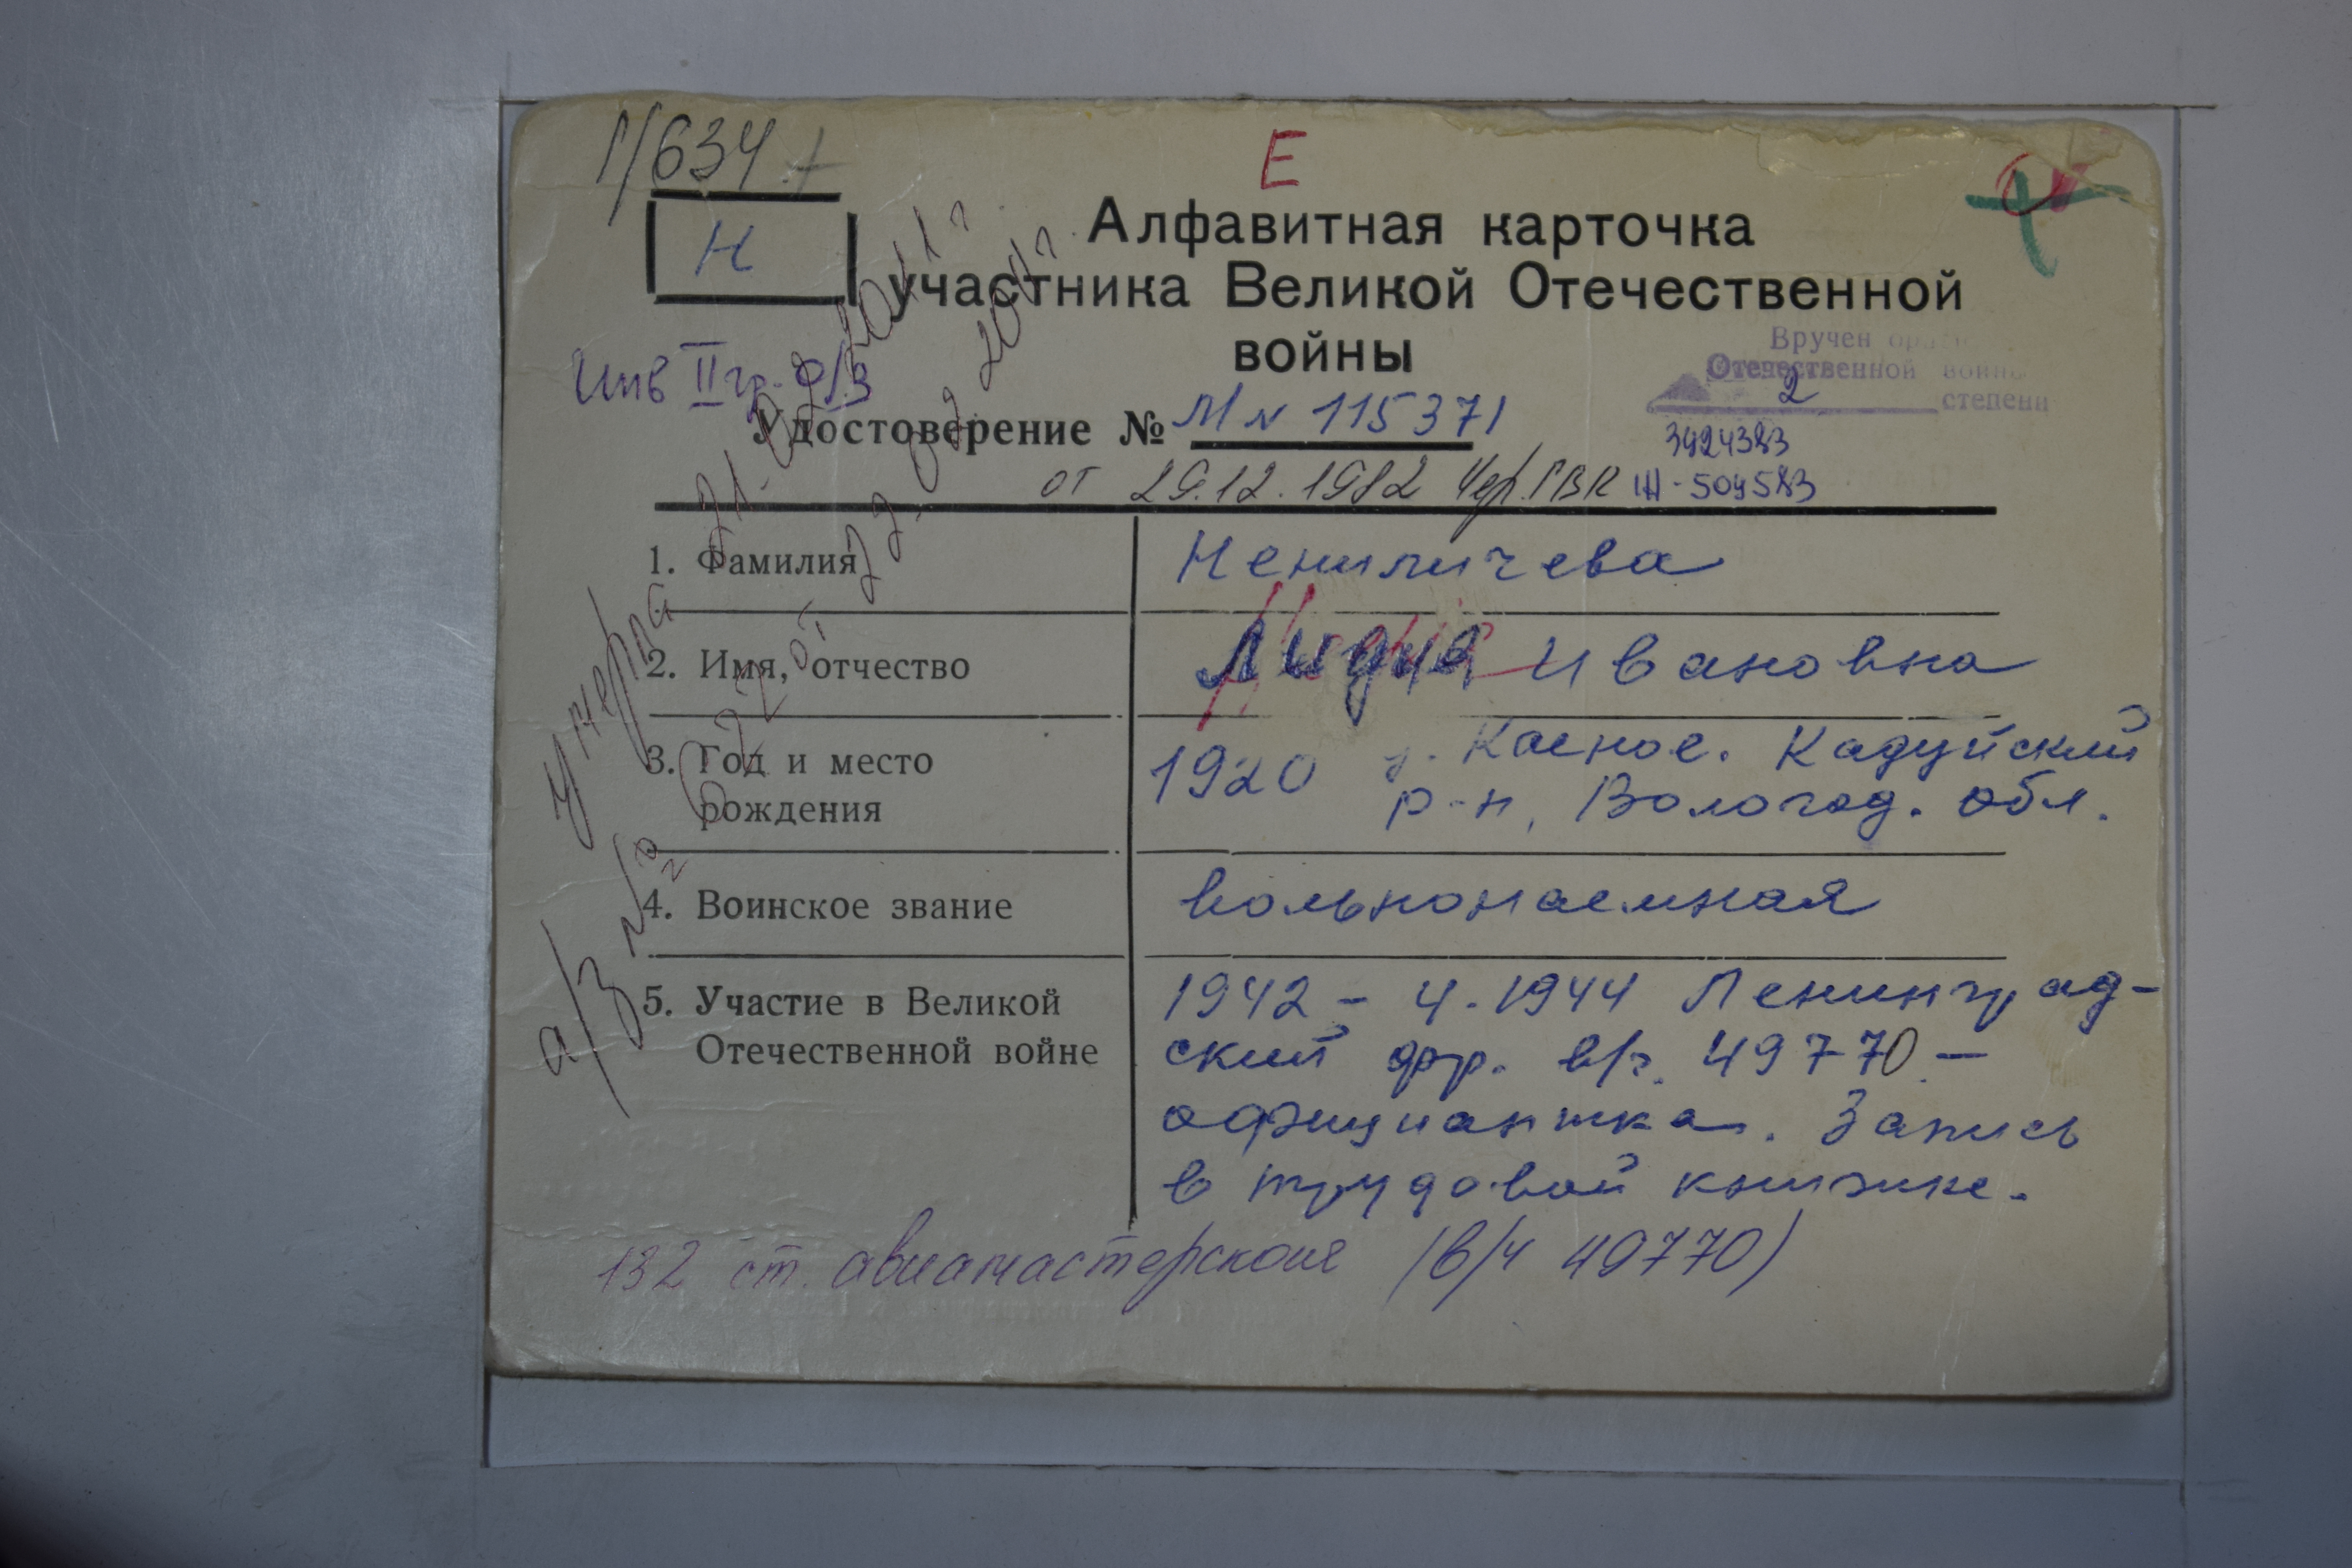 1/634
Е
Н
Алфавитная карточка
участника Великой Отечественной
войны
Вручен
Отечественной войны
2
степени
3424383
Ш-504583
Инв II гр. о/з
Удостоверение № МN 115371
от 29.12.1982 Чер. ГВК
1. Фамилия Нениличева
2. Имя, отчество Лидия Ивановна
3. Год и место рождения 1920 Кадуйский
р-н, Вологод. обл.
4. Воинское звание вольнонаемная
5. Участие в Великой Отечественной войне 1942 - 4.1944 Ленинград-
ский фр. в/ч. 49770 -
официантка. Запись
в трудовой книжке.
132 ст. авиамастерская (в/ч 49770)
умерла 21. 02. 2011 г
а/з № 622 от 22. 02 2011 г.